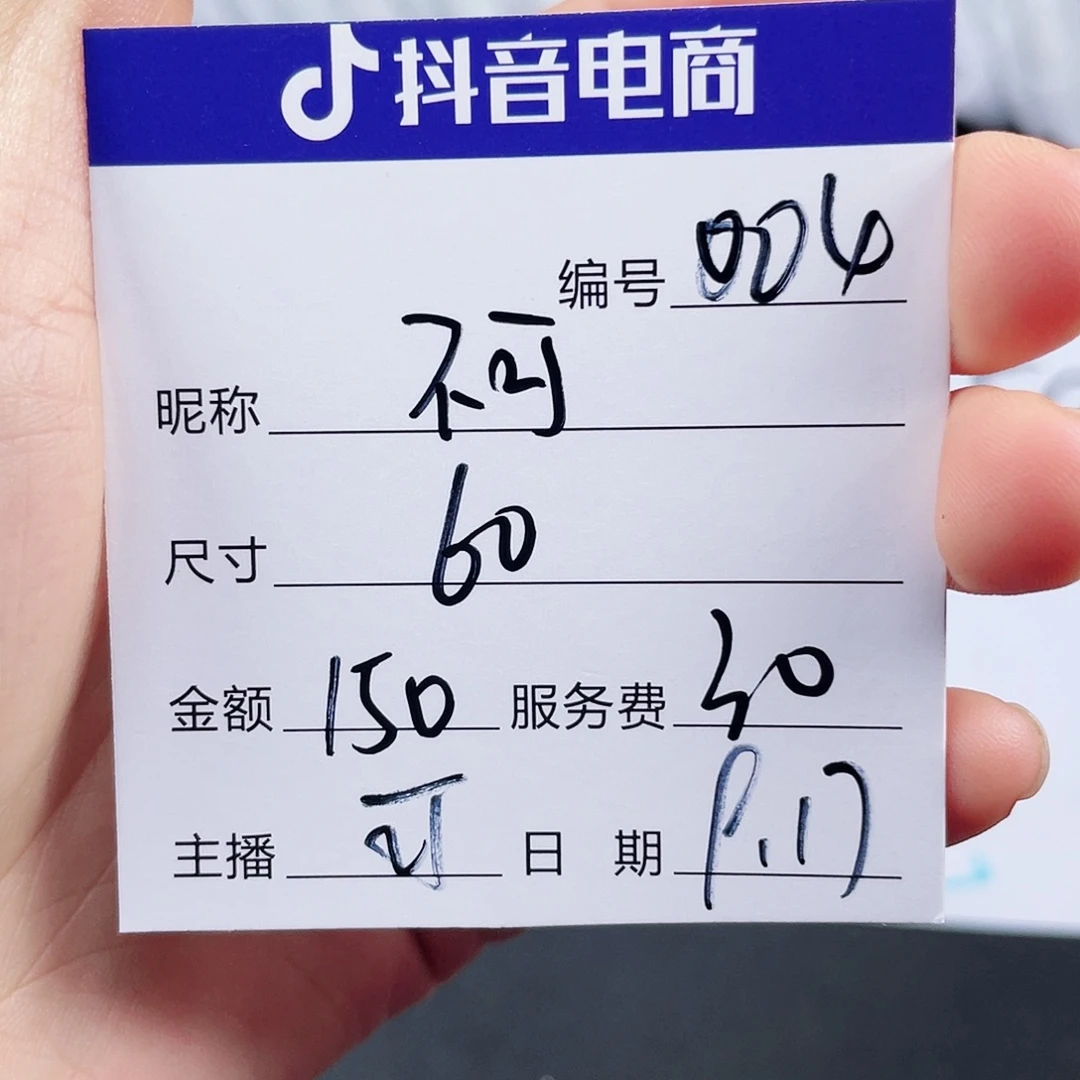 抖音电商
编号 004
昵称 不可
尺寸 60
金额 150 服务费 30
主播 可 日期 9.17